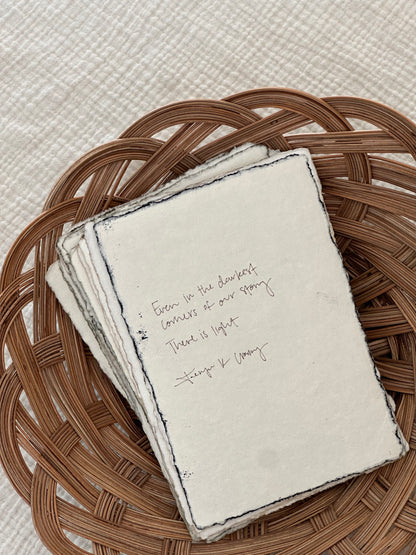 Even in the darkest
corners of our story
There is light
K